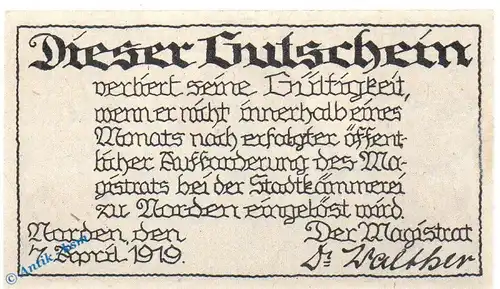 Dieser Gutschein
verliert seine Gültigkeit,
wenn er nicht innerhalb eines
Monats nach erfolgter öffent-
licher Aufforderung des Ma-
gistrats bei der Stadtkämmerei
zu Norden eingelöst wird.
Norden, den Der Magistrat
7. April 1919. Dr Walther
© Antik